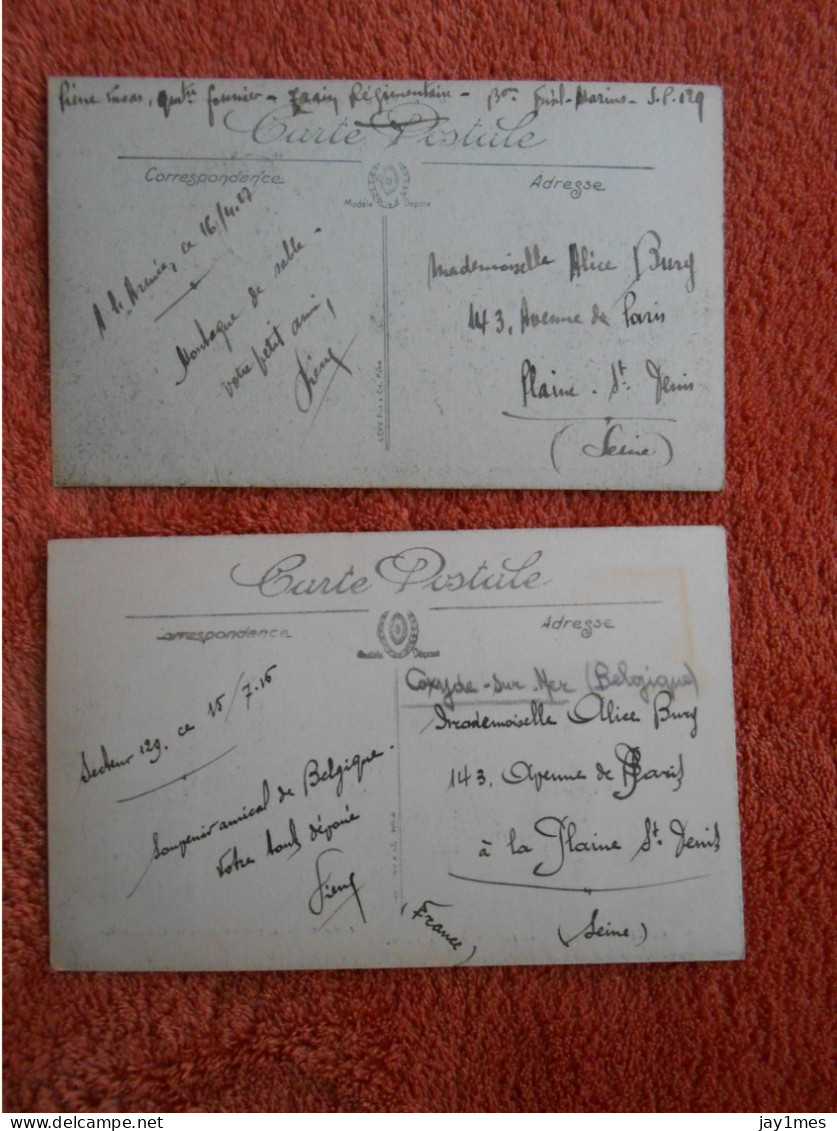 Pierre Lucas, fourrier - Train Régimentaire - Bon Fusil-Marins - S.P. 129
Carte Postale
Correspondance
Adresse
Modèle Déposé
A l'Armée, ce 16/4.17
Montagne de sable -
Votre petit ami,
Pierre
Mademoiselle Alice Burg
143, Avenue de Paris
Plaine - St Denis
(Seine)
Carte Postale
Correspondance
Adresse
Modèle Déposé
Secteur 129. ce 15/7.16
Souvenir amical de Belgique.
Votre tout dévoué
Pierre
(France)
Coxyde-sur-Mer (Belgique)
Mademoiselle Alice Burg
143, Avenue de Paris
à la Plaine St Denis
(Seine)
delcampe.net
jay1mes